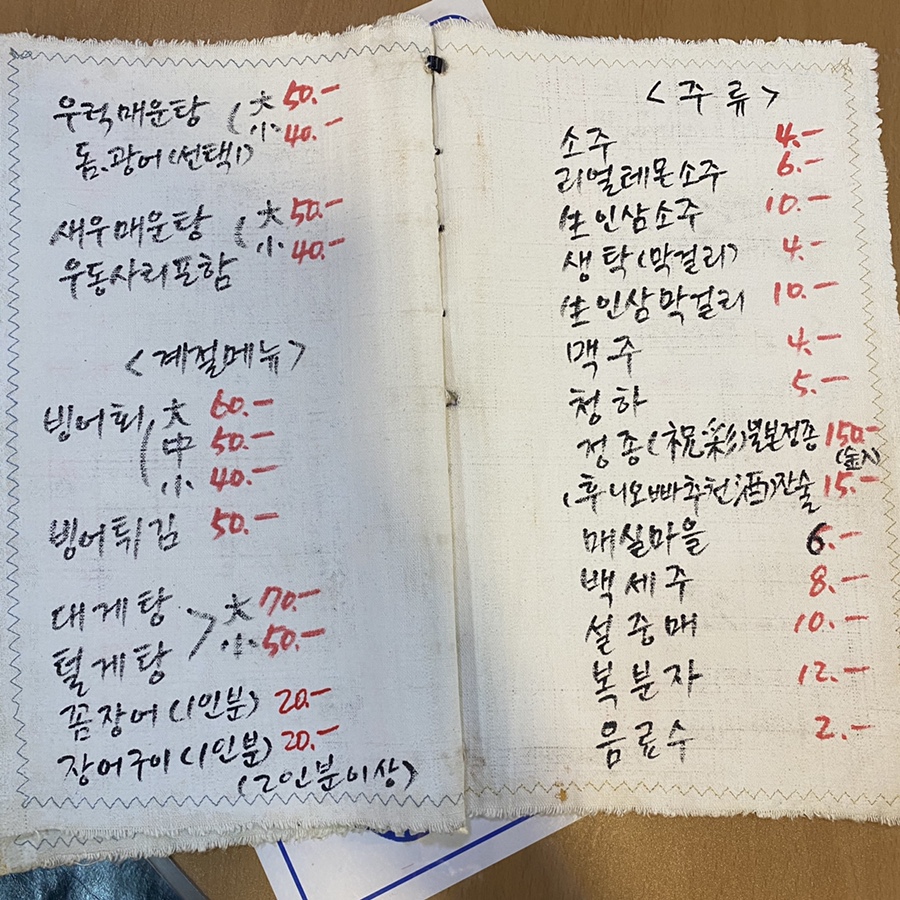 우럭매운탕 (大 50.-
小 40.-
돔.광어(선택1)
새우매운탕 (大 50.-
小 40.-
우동사리포함
<계절메뉴>
빙어회 (大 60.-
中 50.-
小 40.-
빙어튀김 50.-
대게탕 > 大 70.-
털게탕 小 50.-
꼼장어(1인분) 20.-
장어구이(1인분) 20.-
(2인분이상)
<주류>
소주 4.-
리얼레몬소주 6.-
生인삼소주 10.-
생탁(막걸리) 4.-
生인삼막걸리 10.-
맥주 4.-
청하 5.-
정종(祝彩)일본정종 150.-
(金入)
(후니오빠추천酒)잔술 15.-
매실마을 6.-
백세주 8.-
설중매 10.-
복분자 12.-
음료수 2.-